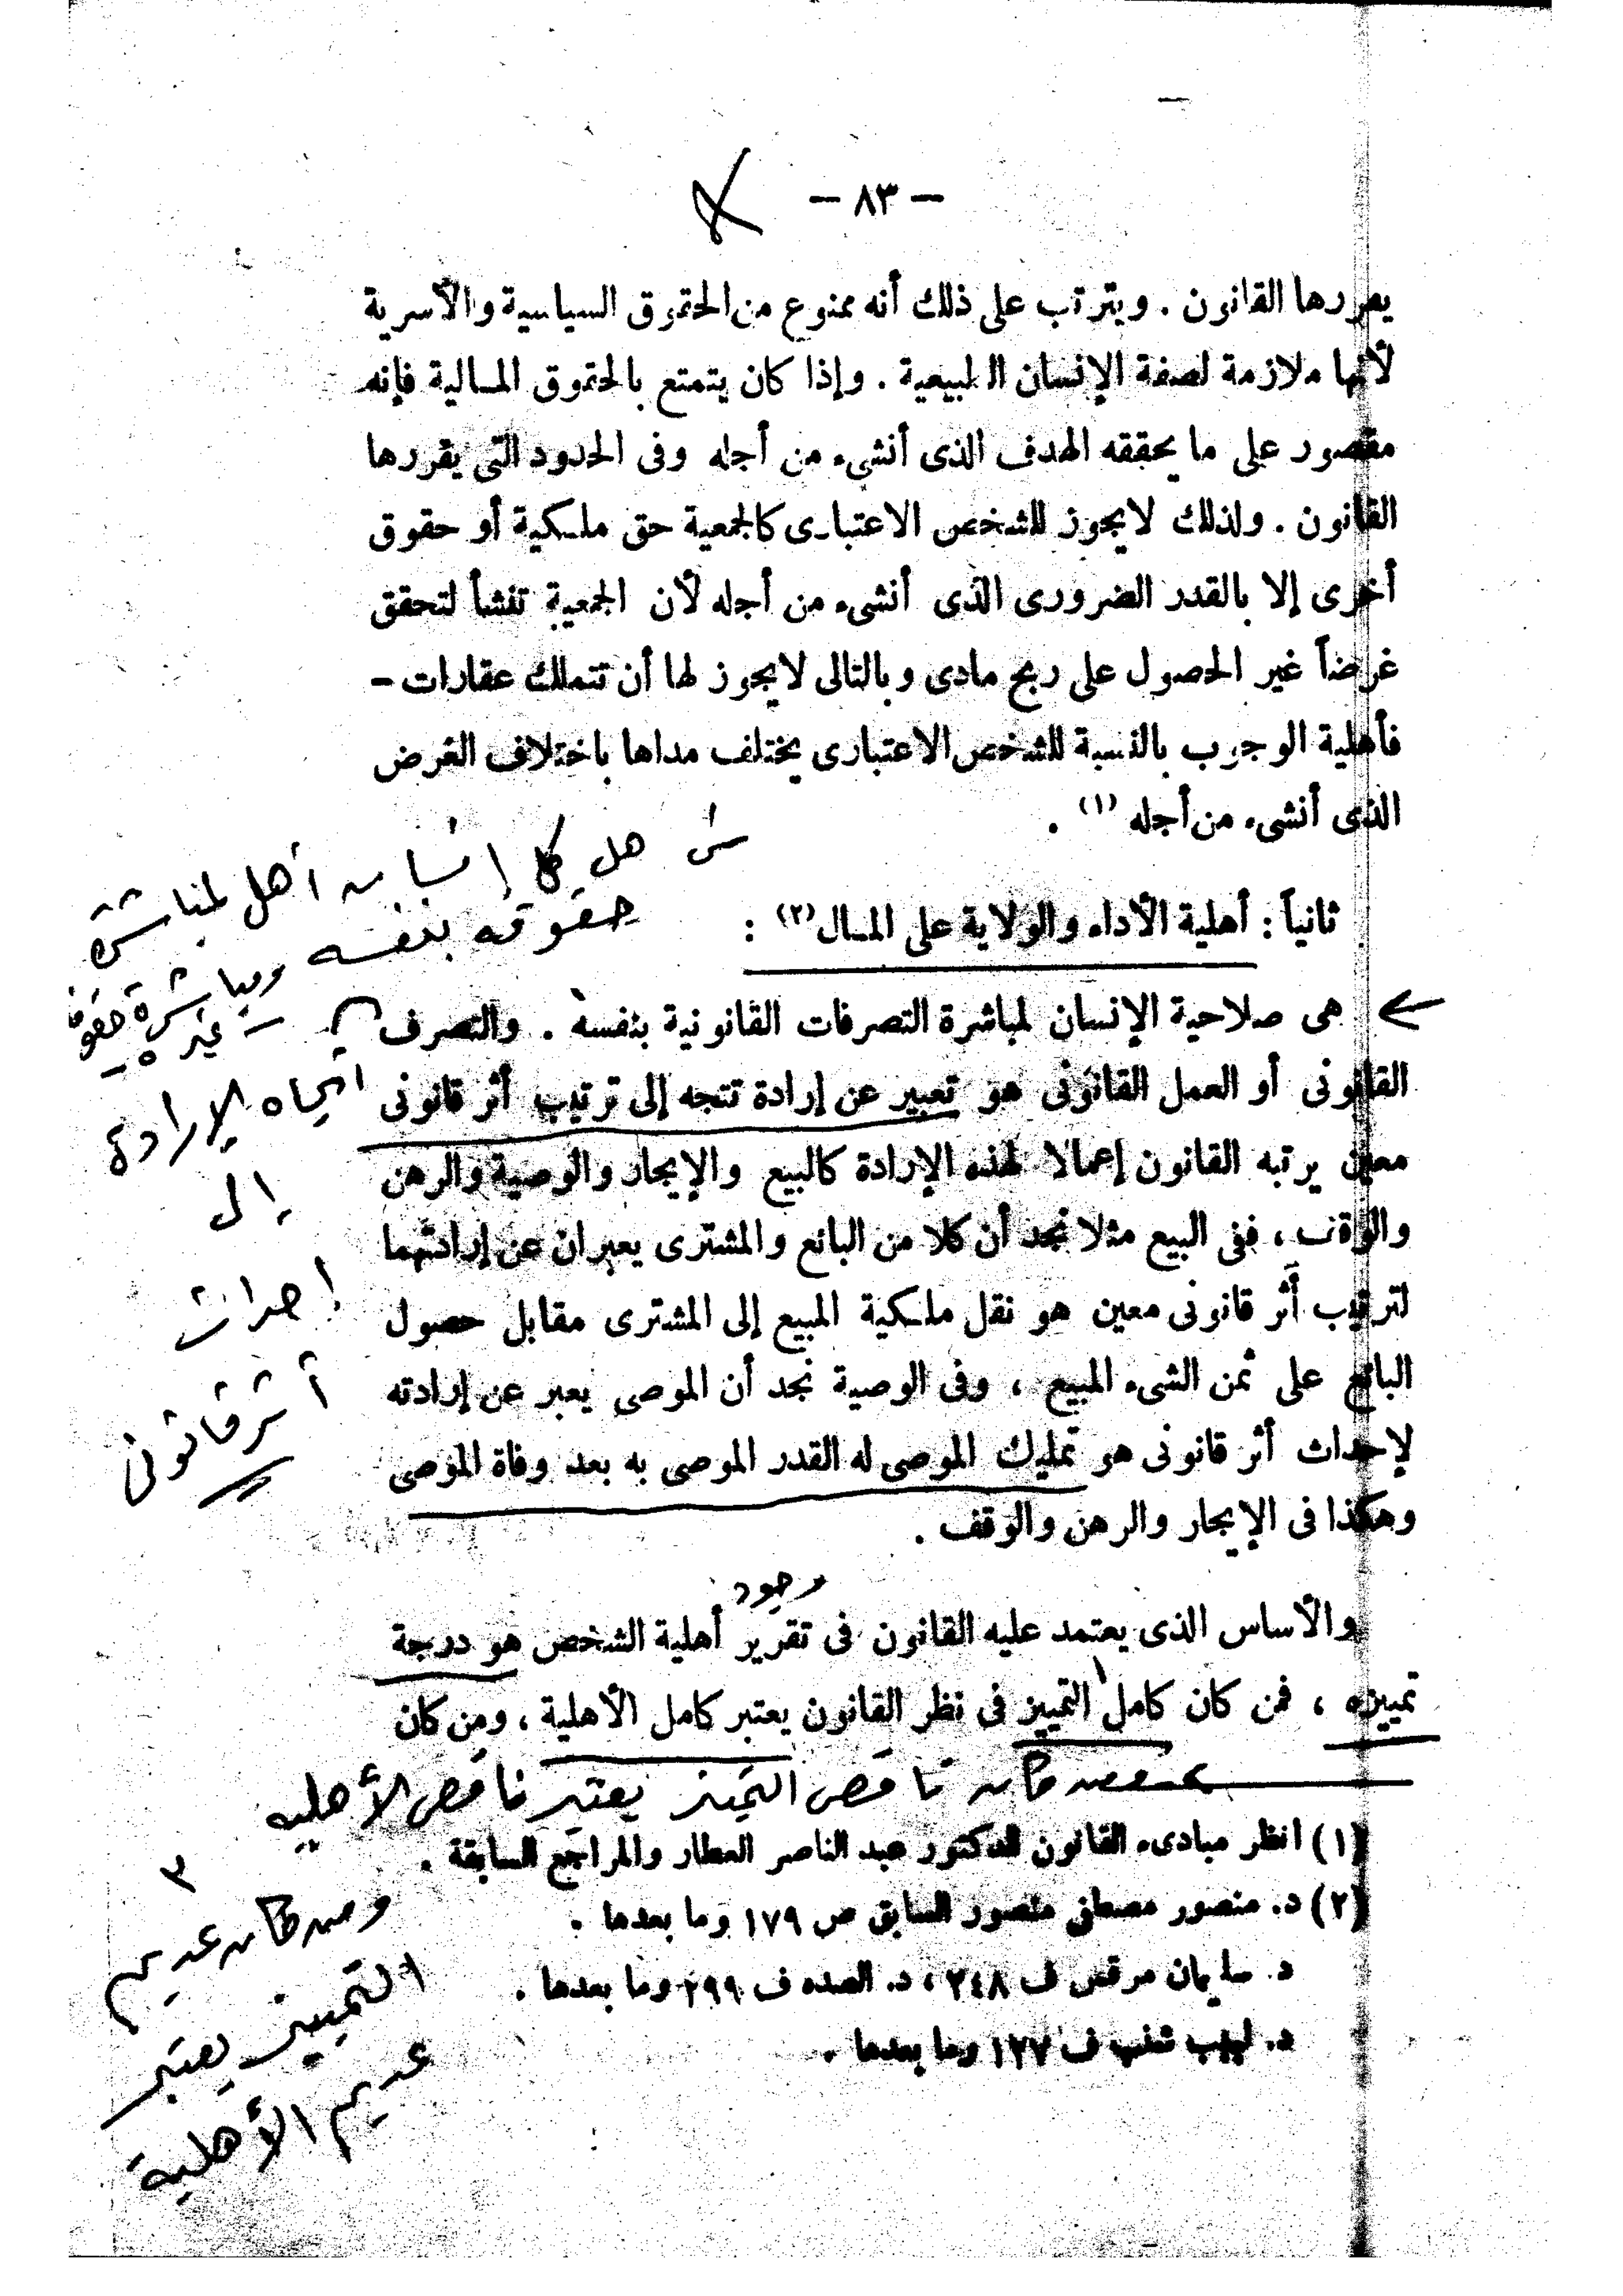 — ٨٣ —
يقررها القانون . ويترتب على ذلك أنه ممنوع من الحقوق السياسية والأسرية
لأنها ملازمة لصفة الإنسان الطبيعية . وإذا كان يتمتع بالحقوق المالية فإنه
مقصور على ما يحققه الهدف الذى أنشىء من أجله وفى الحدود التى يقررها
القانون . ولذلك لا يجوز للشخص الاعتبارى كالجمعية حق ملكية أو حقوق
أخرى إلا بالقدر الضرورى الذى أنشىء من أجله لأن الجمعية تنشأ لتحقق
غرضاً غير الحصول على ربح مادى وبالتالى لا يجوز لها أن تتملك عقارات –
فأهلية الوجوب بالنسبة للشخص الاعتبارى يختلف مداها باختلاف الغرض
الذى أنشىء من أجله (١) .
س هل كل إنسان أهل لمباشرة
حقوقه بنفسه ومباشرة حقوق
غيره
ثانياً : أهلية الأداء والولاية على المال (٢) :
هى صلاحية الإنسان لمباشرة التصرفات القانونية بنفسه . والتصرف
القانونى أو العمل القانونى هو تعبير عن إرادة تتجه إلى ترتيب أثر قانونى
معين يرتبه القانون إعمالا لهذه الإرادة كالبيع والإيجار والوصية والرهن
والوقف ، ففى البيع مثلا نجد أن كلا من البائع والمشترى يعبران عن إرادتهما
لترتيب أثر قانونى معين هو نقل ملكية المبيع إلى المشترى مقابل حصول
البائع على ثمن الشىء المبيع ، وفى الوصية نجد أن الموصى يعبر عن إرادته
لإحداث أثر قانونى هو تمليك الموصى له القدر الموصى به بعد وفاة الموصى
وهكذا فى الإيجار والرهن والوقف .
اتجاه الإرادة
إلى
إحداث
أثر قانونى
وجود
والأساس الذى يعتمد عليه القانون فى تقرير أهلية الشخص هو درجة
تمييزه ، فمن كان كامل التمييز فى نظر القانون يعتبر كامل الأهلية ، ومن كان
ومن كان ناقص التمييز يعتبر ناقص الأهليه
(١) انظر مبادىء القانون للدكتور عبد الناصر العطار والمراجع السابقة .
(٢) د. منصور مصطفى منصور السابق ص ١٧٩ وما بعدها .
د. سليمان مرقص ف ٢٤٨ ، د. الصده ف ٢٩٩ وما بعدها .
د. لبيب شنب ف ١٢٧ وما بعدها .
٣
ومن كان عديم
التمييز يعتبر
عديم الأهلية